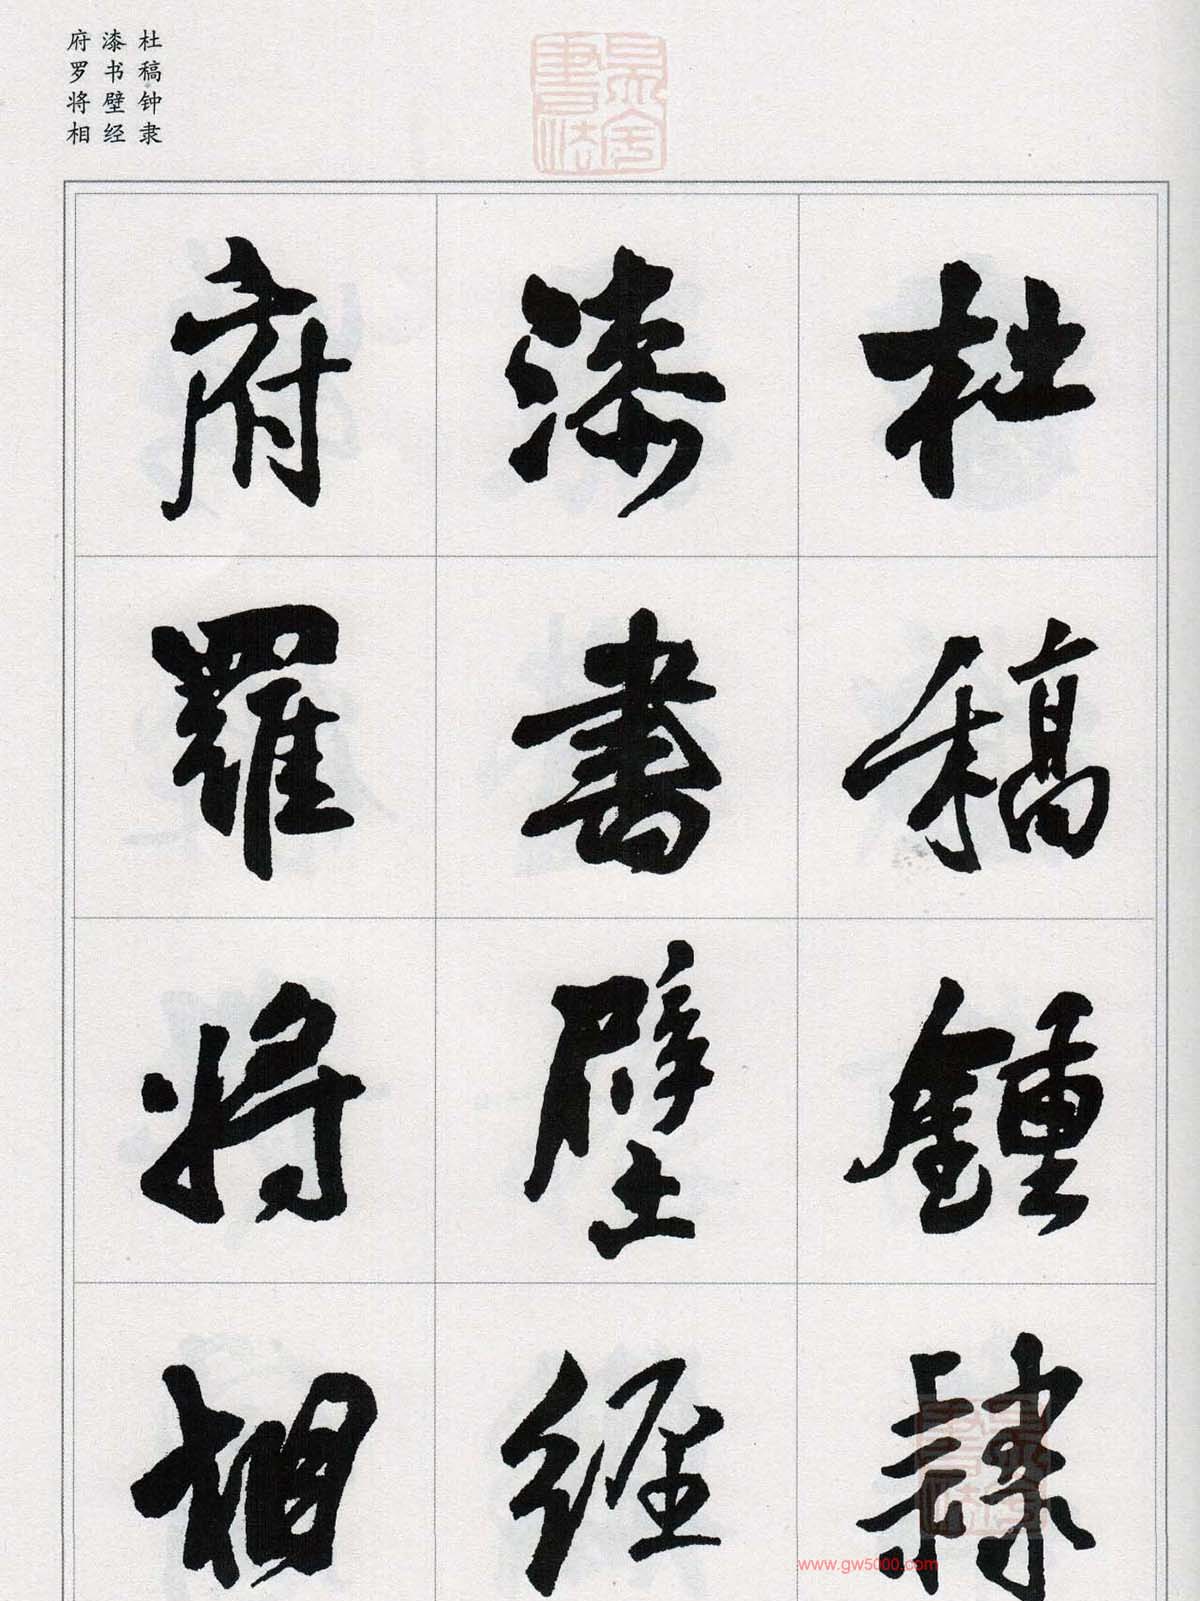 杜稿钟隶
漆书壁经
府罗将相
杜稿鍾隸
漆書壁經
府羅将相
www.gw5000.com